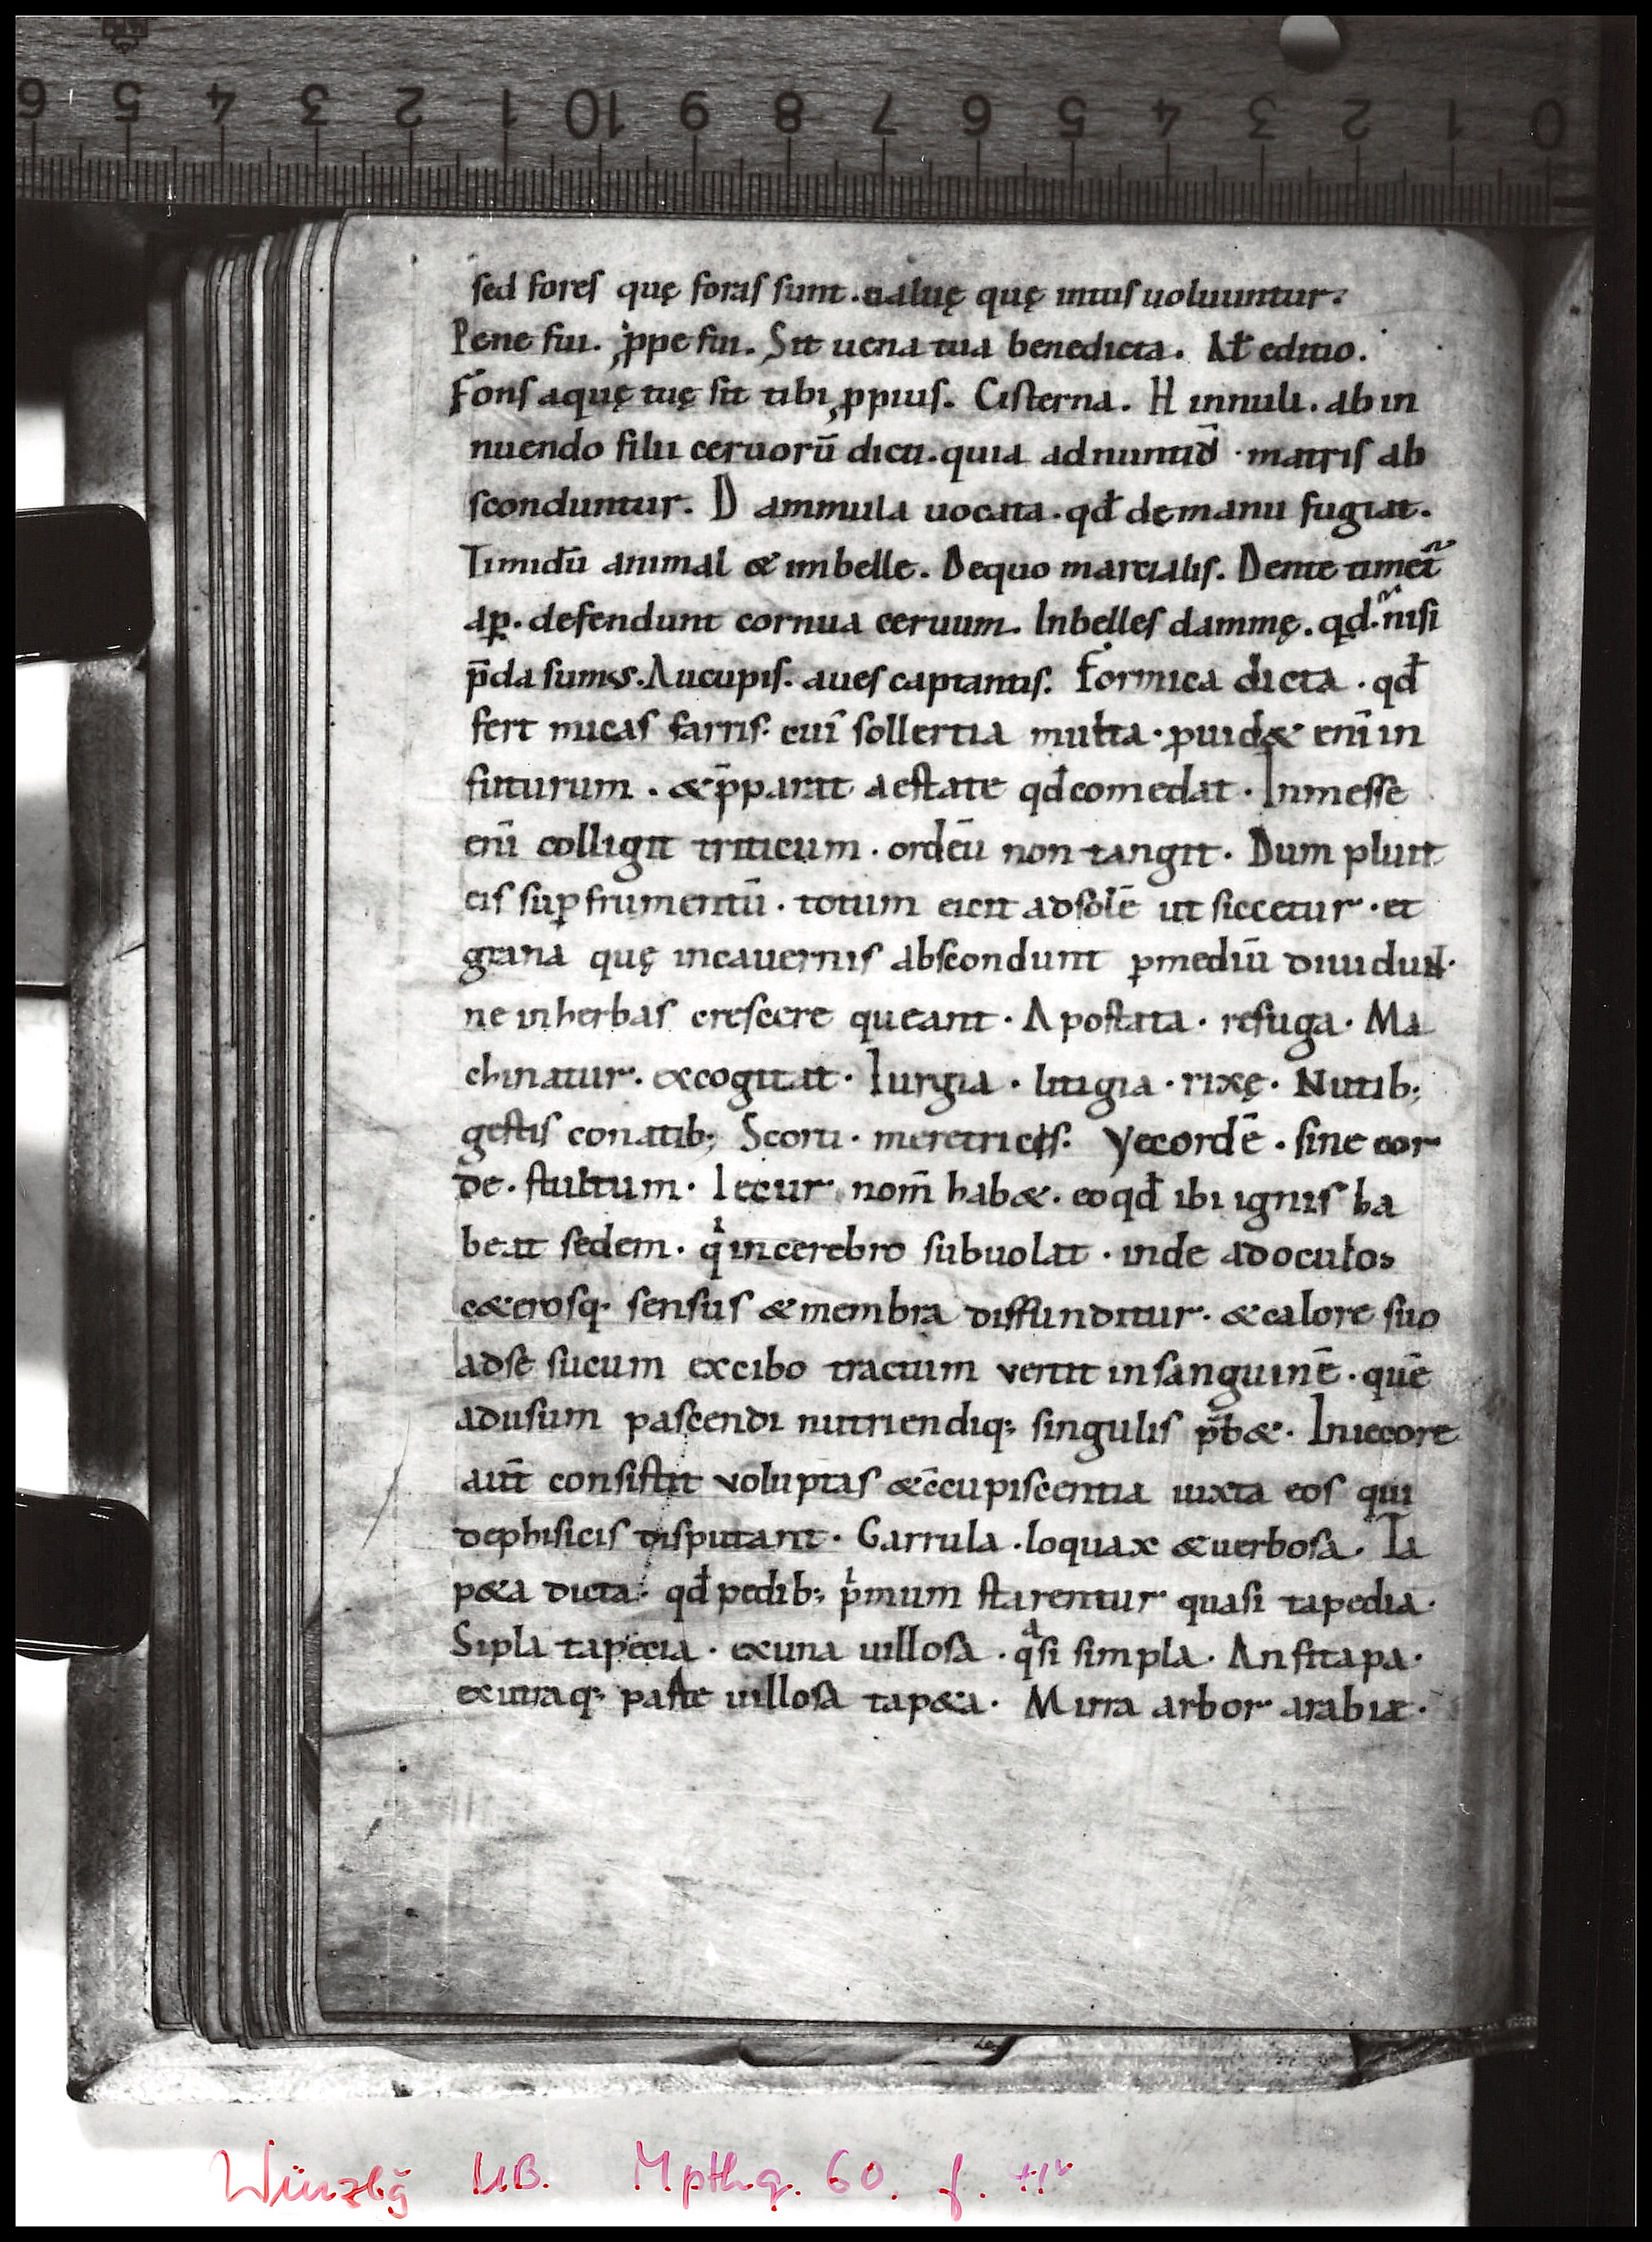 6 5 4 3 2 1 10 9 8 7 6 5 4 3 2 1 0
sed fores quę foras sunt. ualuę quę intus uoluuntur.
Pene fui. ꝓppe fui. Sit uena tua benedicta. Alt̄ editio.
Fons aquę tuę sit tibi ꝓppius. Cisterna. Hinnuli. ab in
nuendo filii ceruorū dicti. quia ad nuntiō matris ab
sconduntur. Dammula uocata. qđ de manu fugiat.
Timidū animal & imbelle. De quo martialis. Dente timet̄
aꝑ. defendunt cornua ceruum. Inbelles dammę. qd. nisi
p̄da sumus. Aucupis. aues captantis. Formica dicta. qđ
fert micas farris. cui ̄ sollertia multa. ꝓuid& enī in
futurum. & p̄parat aestate qđ comedat. In messe
enī colligit triticum. ordeū non tangit. Dum pluit
eis suꝑ frumentū. totum eicit ad solē ut siccetur. et
grana quę in cauernis abscondunt ꝑ mediū diuidunt.
ne in herbas crescere queant. Apostata. refuga. Ma
chinatur. excogitat. Iurgia. litigia. rixę. Nutib;
gestis conatib; Scorti. meretricis. Vecordē. sine cor
de. stultum. Iecur nom̄ hab&. eo qđ ibi ignis ha
beat sedem. qͥ in cerebro subuolat. inde ad oculos
c&erosq. sensus & membra diffunditur. & calore suo
ad se sucum ex cibo tractum vertit in sanguinē. quē
ad usum pascendi nutriendiq; singulis p̄b&. In iecore
aut̄ consistit voluptas & c̄cupiscentia iuxta eos qui
de phisicis disputant. Garrula. loquax & uerbosa. Ta
p&a dicta. qđ pedib; pͥmum starentur quasi tapedia.
Sipla tapecia. ex una uillosa. qͣsi simpla. Anfitapa.
ex utraq; parte uillosa tap&a. Mirra arbor arabiæ.
Würzbg UB. Mpthq. 60. f.